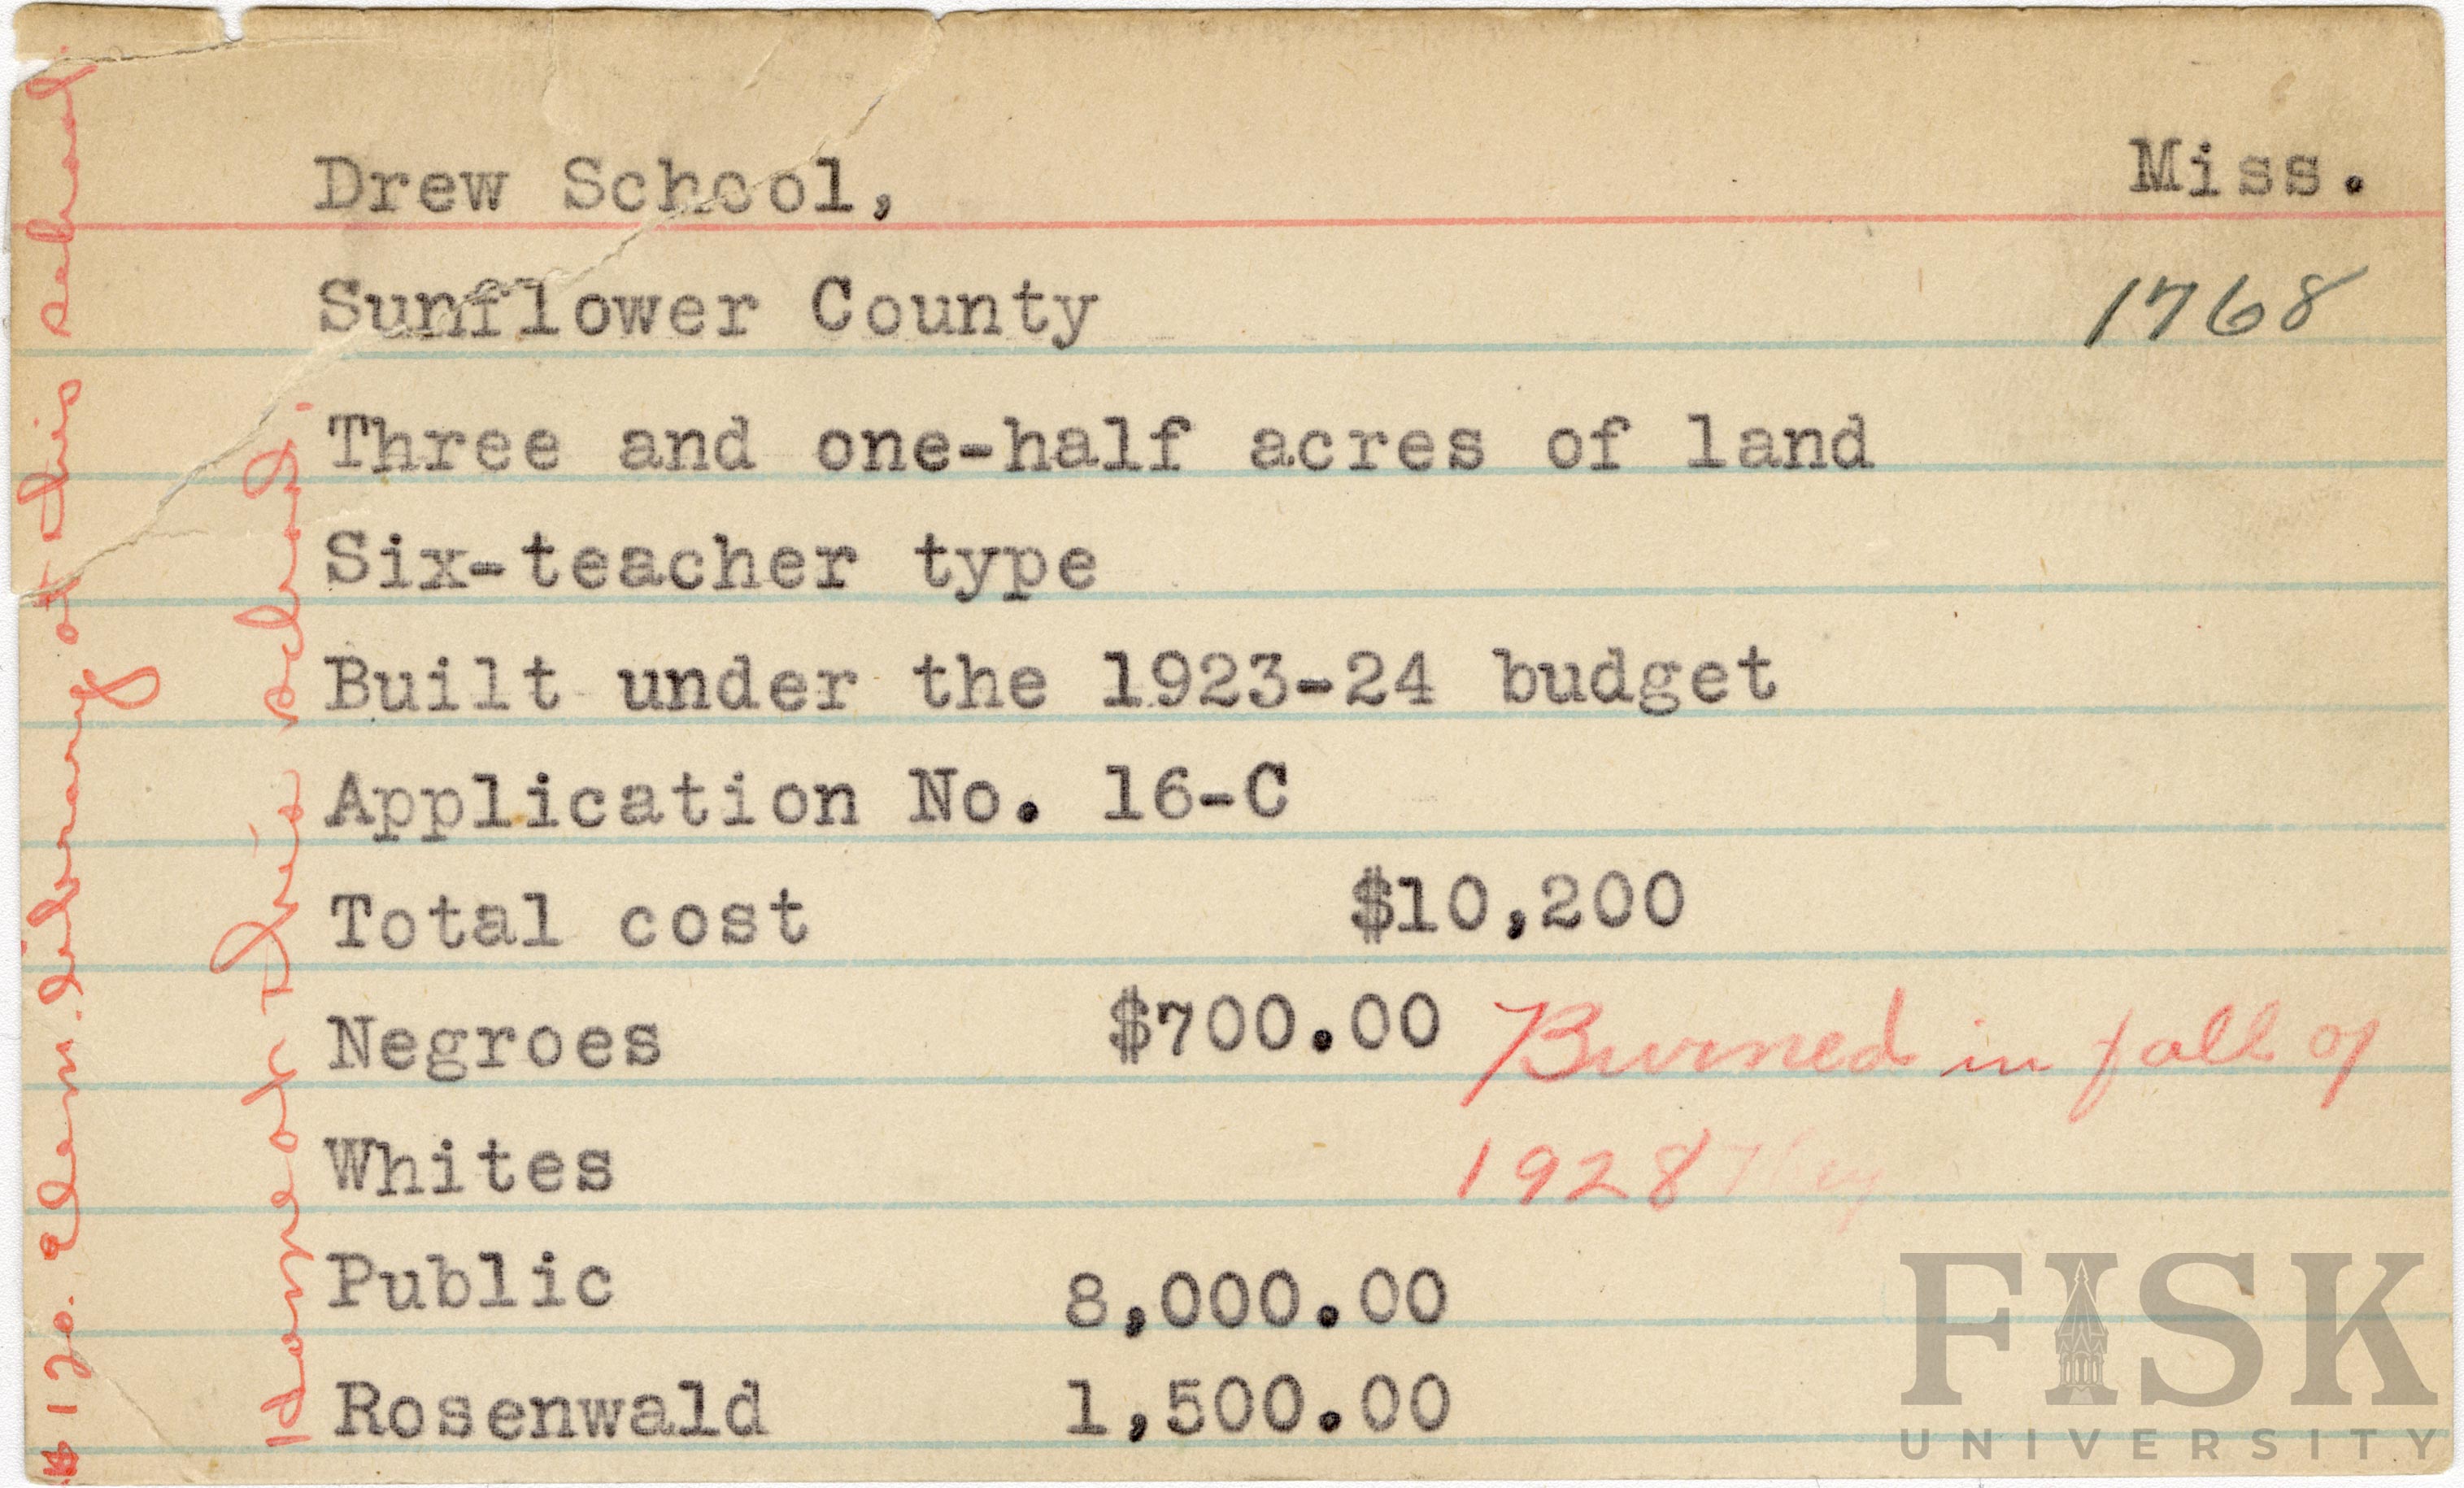 Drew School,
Miss.
Sunflower County
1768
Three and one-half acres of land
Six-teacher type
Built under the 1923-24 budget
Application No. 16-C
Total cost $10,200
Negroes $700.00
Burned in fall of
1928
Whites
Public 8,000.00
Rosenwald 1,500.00
$120. Elem. library at this school.
at this school.
FISK
UNIVERSITY